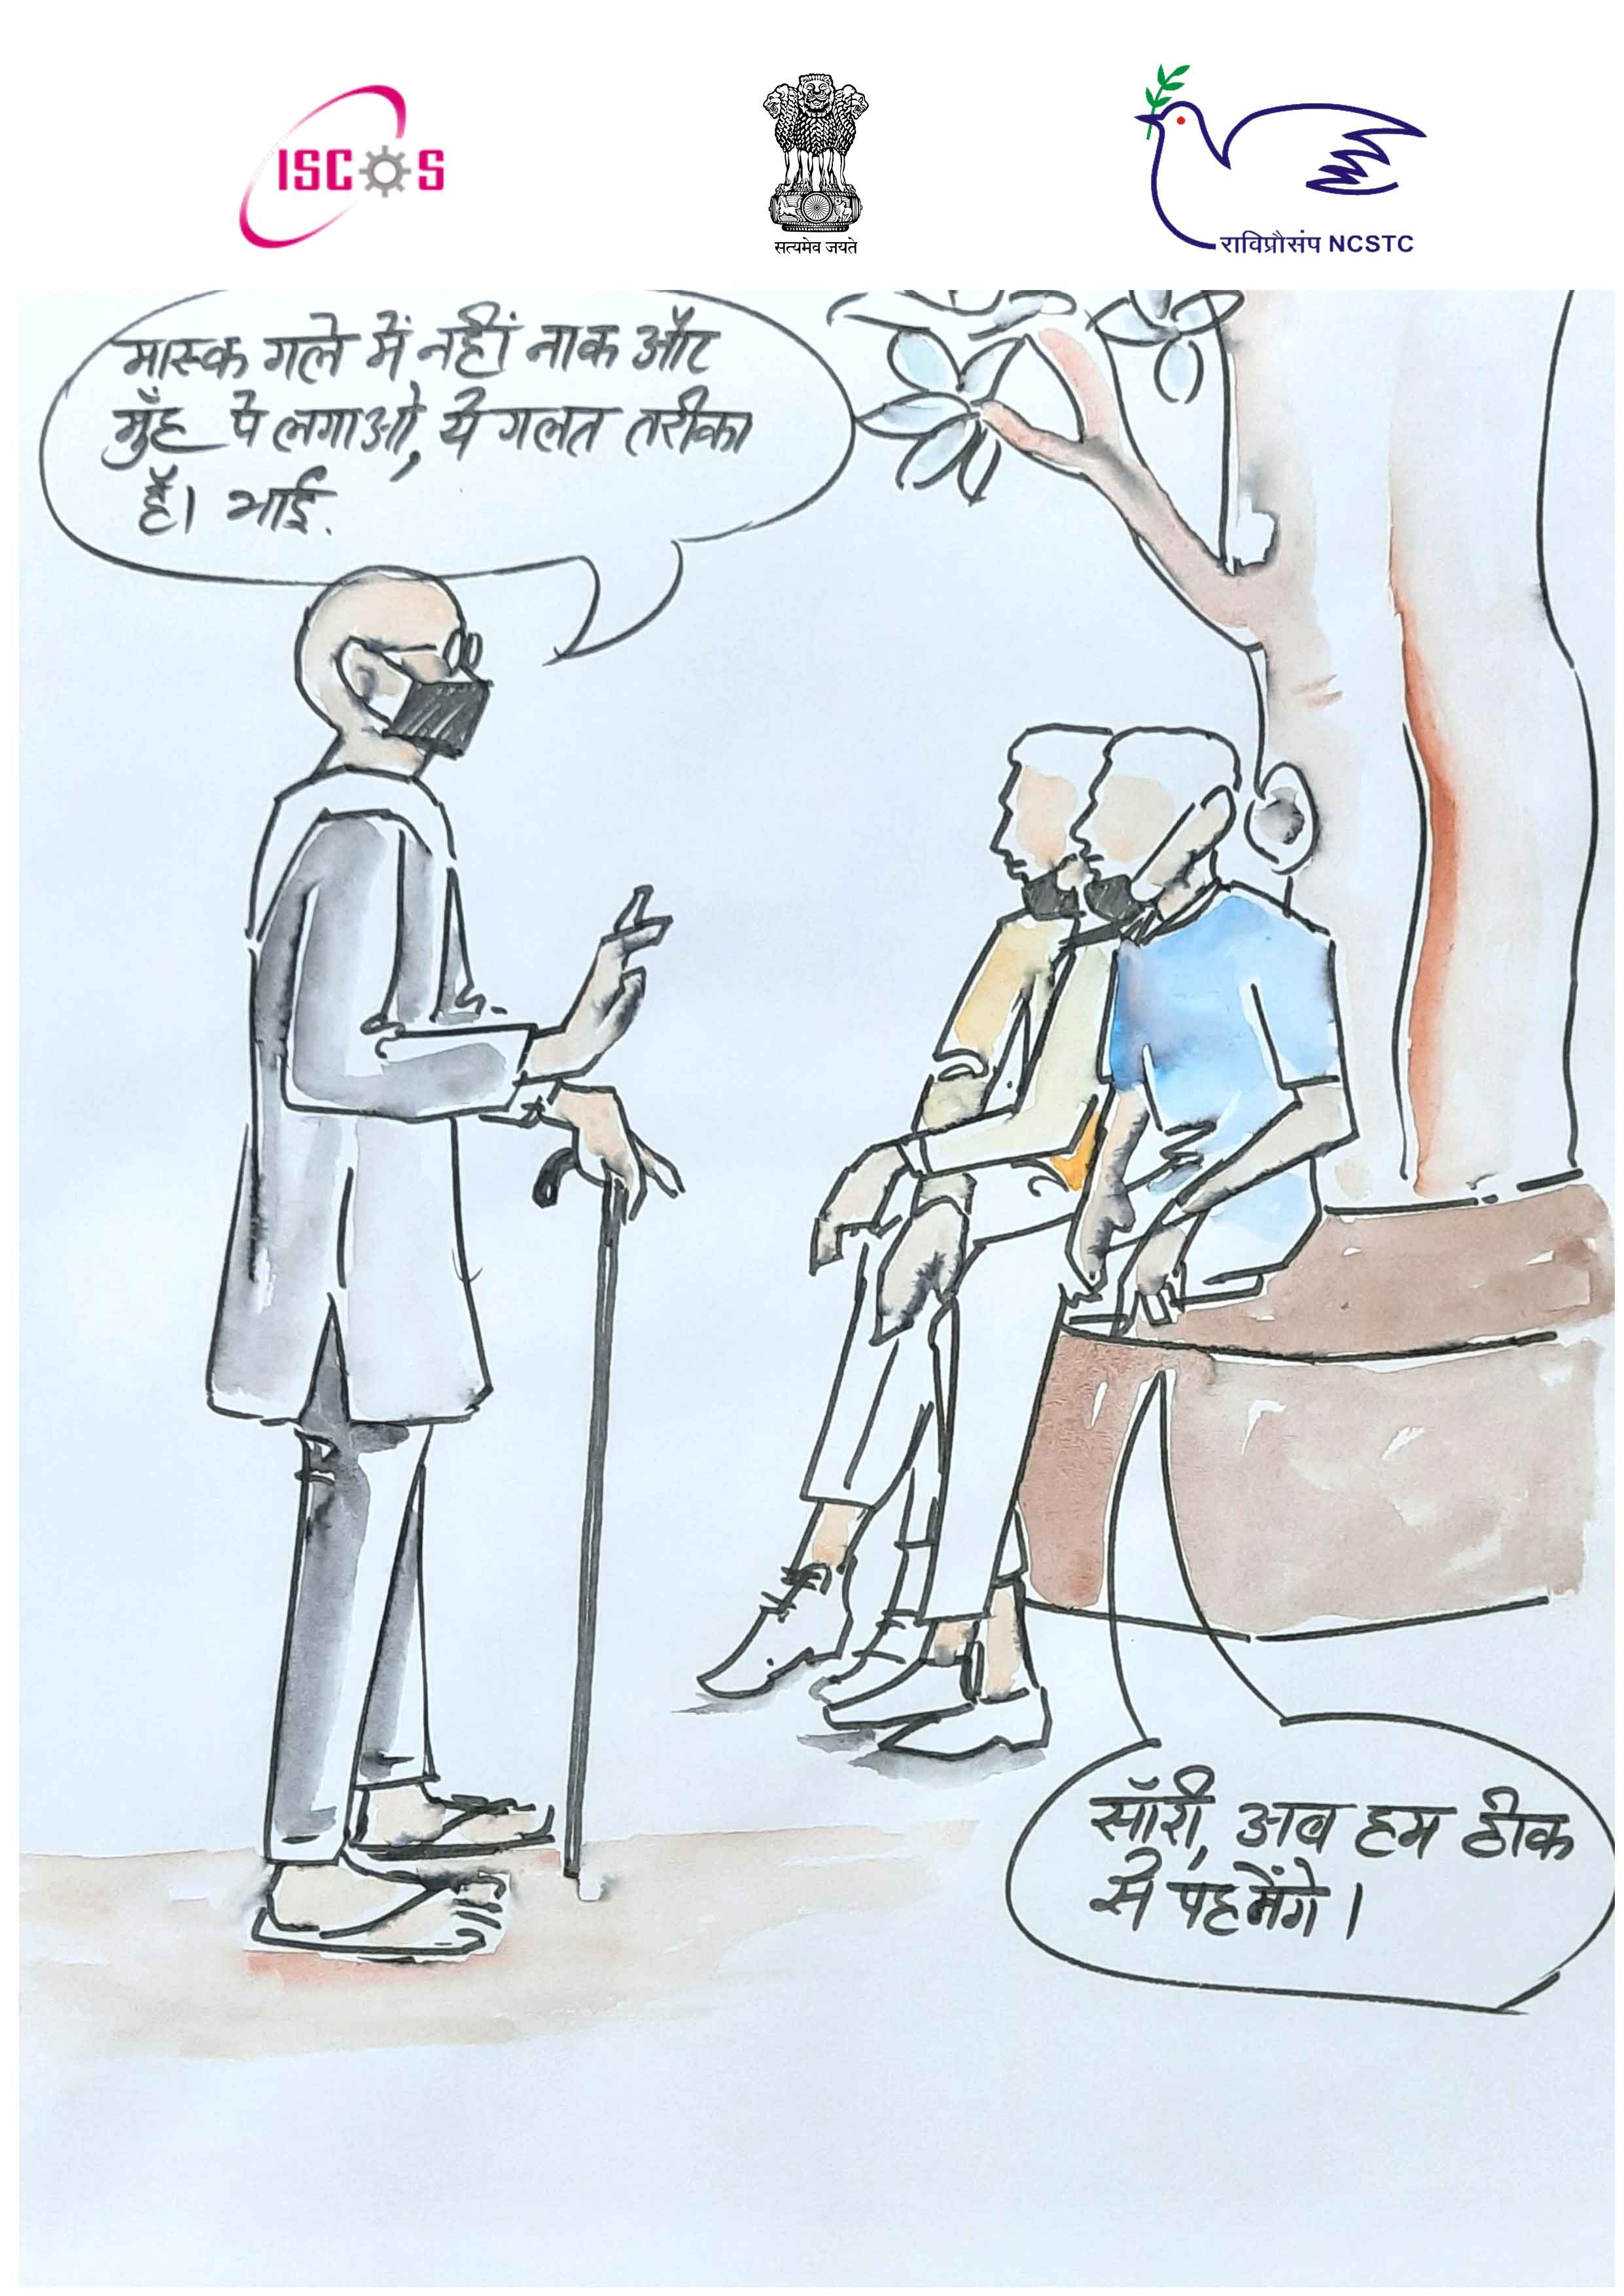 ISCOS
सत्यमेव जयते
राविप्रौसंप NCSTC
मास्क गले में नहीं नाक और
मुँह पे लगाओ, ये गलत तरीका
है। भाई.
सॉरी, अब हम ठीक
से पहनेंगे।